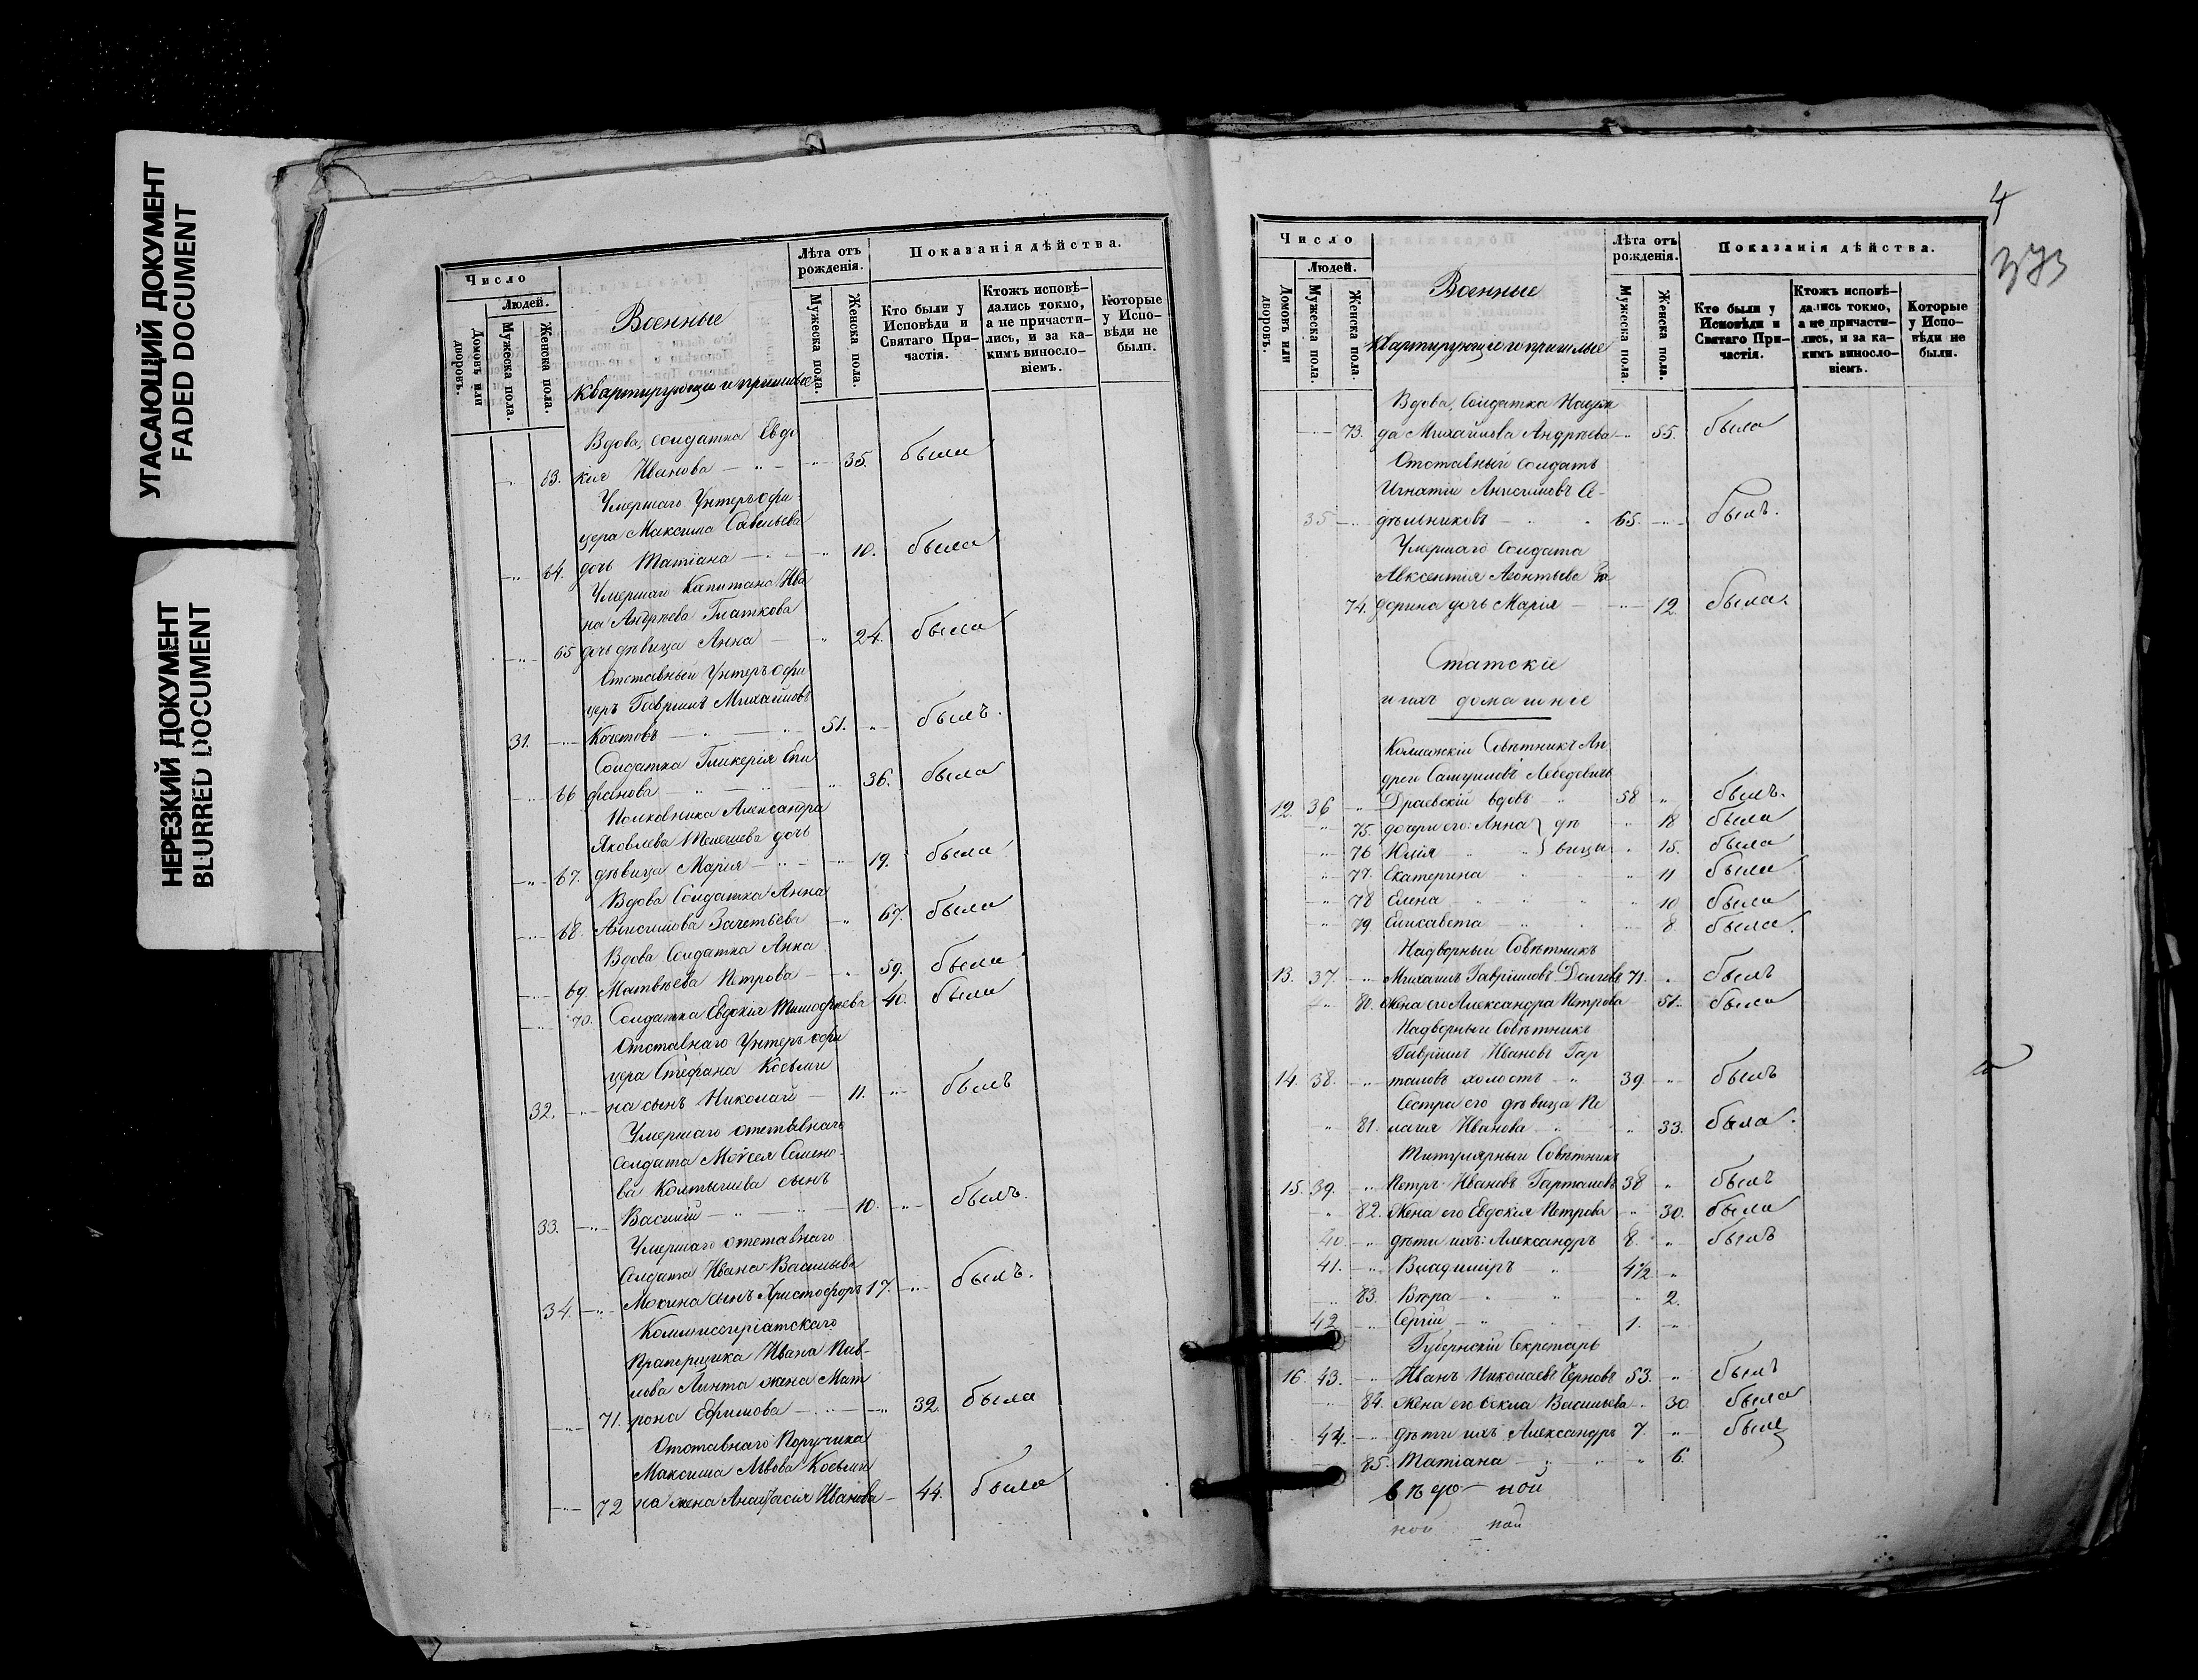 УГАСАЮЩИЙ ДОКУМЕНТ
FADED DOCUMENT
НЕРЕЗКИЙ ДОКУМЕНТ
BLURRED DOCUMENT
Число
Людей.
Домовъ или дворовъ.
Мужеска пола.
Женска пола.
Военные
квартирующіе и пришлые
Лѣта отъ рожденія.
Мужеска пола.
Женска пола.
Показанія дѣйства.
Кто были у Исповѣди и Святаго Причастія.
Ктожъ исповѣдались токмо, а не причастились, и за какимъ винословіемъ.
Которые у Исповѣди не были.
Вдова, солдатка Евдо
63. кія Иванова 35. была
Умершаго Унтеръ офи
цера Максима Савельева
64. дочь Татіана 10. была
Умершаго Капитана Ива
на Андреева Глаткова
65 дочь дѣвица Анна 24. была
Отставный Унтеръ офи
церъ Гавріилъ Михайловъ
31. Кочетовъ 51. былъ.
Солдатка Гликерія Епи
66 фанова 36. была
Полковника Александра
Яковлева дочь
67. дѣвица Марія 19. была
Вдова Солдатка Анна
68. Анисимова 67. была
Вдова Солдатка Анна
69. Матвѣева Петрова 59. была
70. Солдатка Евдокія Тимофѣева 40. была
Отставнаго Унтеръ офи
цера Стефана Косьми
32. на сынъ Николай 11. былъ
Умершаго отставнаго
Солдата Мойсея Семено-
ва сынъ
33. Василій 10. былъ.
Умершаго отставнаго
Солдата Ивана Васильева
34 Мохина сынъ Христофоръ 17. былъ.
Коммисаріатскаго
Прапорщика Ивана Пав-
лова жена Мат
71. рона Ефимова 32. была
Отставнаго Поручика
Максима Львова Косьми
72 на жена Анастасія Иванова 44. была
4
373
Число
Людей.
Домовъ или дворовъ.
Мужеска пола.
Женска пола.
Военные
квартирующіе и пришлые
Лѣта отъ рожденія.
Мужеска пола.
Женска пола.
Показанія дѣйства.
Кто были у Исповѣди и Святаго Причастія.
Ктожъ исповѣдались токмо, а не причастились, и за какимъ винословіемъ.
Которые у Исповѣди не были.
Вдова, Солдатка Надеж
73. да Михайлова Андреева 55. была
Отставный солдатъ
Игнатій Анисимовъ Се-
35 дѣльниковъ 65. былъ.
Умершаго Солдата
Авксентія Леонтьева
74. дочь Марія 12. была.
Статскіе
и ихъ домашніе
Коллежскій Совѣтникъ Ан
дрей Самуиловъ Лебедевичъ
12. 36 Драевскій вдовъ 58 былъ.
75. дочери его: Анна дѣ 18 была
76 Юлія вицы 15. была
77. Екатерина 11 была
78 Елена 10 была
79 Елисавета 8 была.
Надворный Совѣтникъ
13. 37. Михаилъ Гавріиловъ Долговъ 71. былъ
80. Жена его Александра Петрова 51. была
Надворный Совѣтникъ
Гавріилъ Ивановъ Гар
14. 38. таловъ холостъ 39. былъ
Сестра его дѣвица Пе
81. лагія Иванова 33. была.
Титулярный Совѣтникъ
15. 39. Петръ Ивановъ Гарталовъ 38 былъ
82. Жена его Евдокія Петрова 30. была
40. дѣти ихъ: Александръ 8. былъ
41. Владимиръ 4½
83. Вѣра 2.
42 Сергій 1.
Губернскій Секретарь
16. 43. Иванъ Николаевъ Черновъ 53. былъ
84. Жена его Ѳекла Васильева 30. была
44. дѣти ихъ Александръ 7. были
85. Татіана 6.
ной
ной